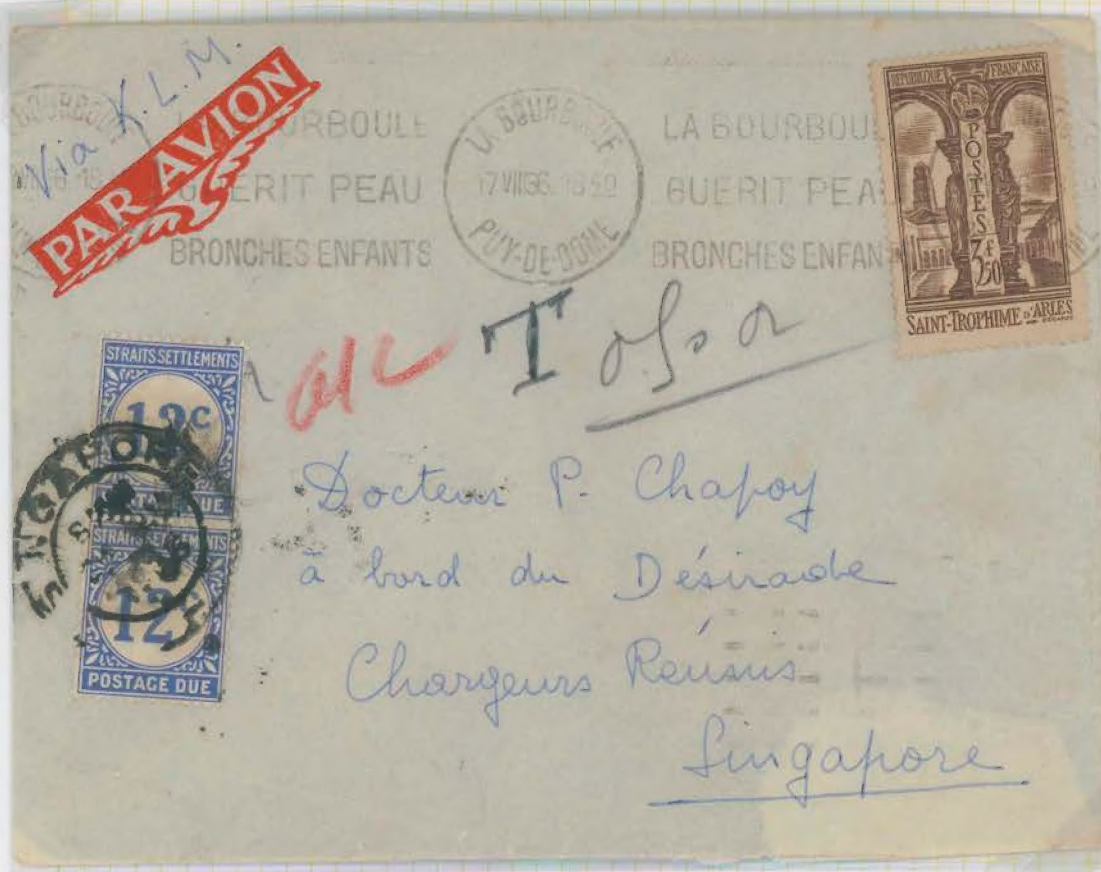 Via K.L.M.
PAR AVION
LA BOURBOULE
GUERIT PEAU
BRONCHES ENFANTS
LA BOURBOULE
17 VIII 36. 18 50
PUY-DE-DOME
LA BOURBOU
GUERIT PEA
BRONCHES ENFAN
REPUBLIQUE FRANÇAISE
POSTES
3F50
SAINT-TROPHIME D'ARLES
T
STRAITS SETTLEMENTS
12c
POSTAGE DUE
STRAITS SETTLEMENTS
12
POSTAGE DUE
Docteur P. Chapoy
à bord du Désirade
Chargeurs Réunis
Singapore